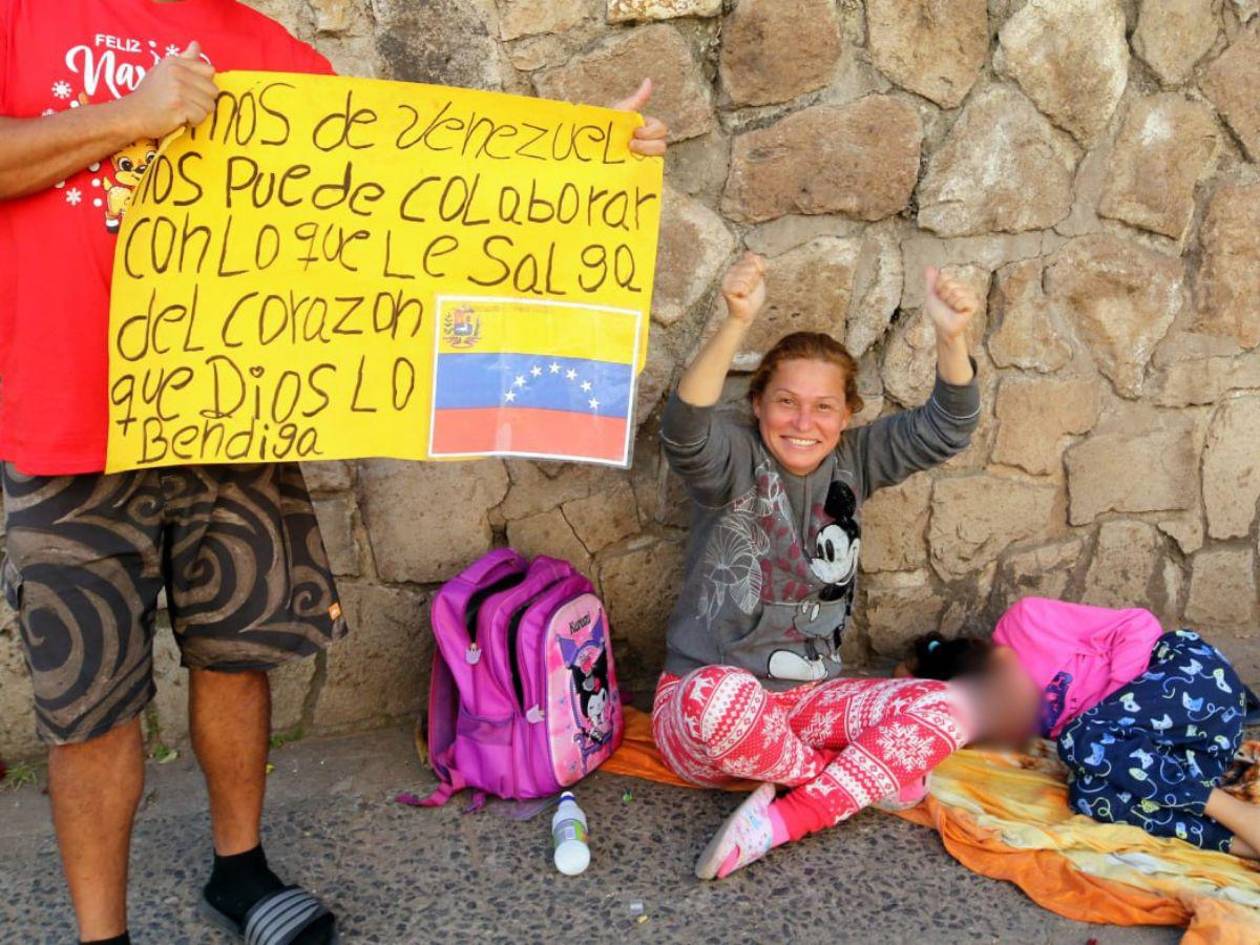 FELIZ
mos de Venezuel
nos Puede coLaborar
con Lo que Le SaLga
deL corazon
que Dios Lo
Bendiga
Kuromi